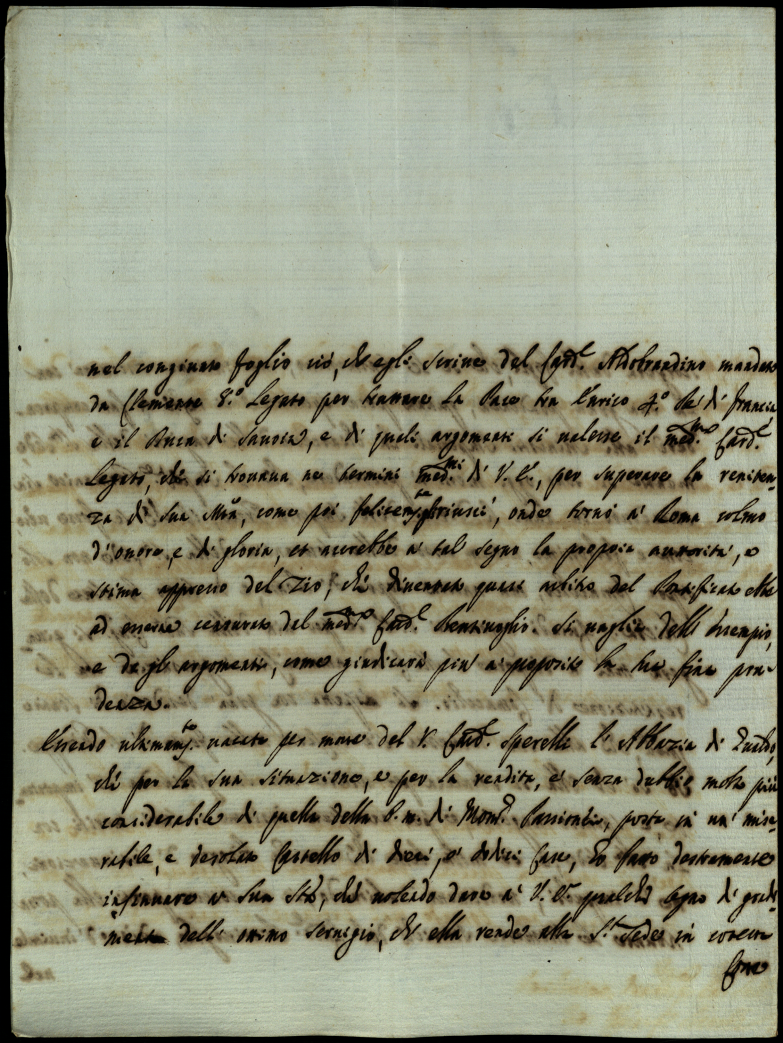 nel congiunto foglio ciò, ch'egli scrive del Card.l Aldobrandino mandato
da Clemente 8.o Legato per trattare la Pace tra Enrico 4.o Rè di Francia
e il Duca di Savoia, e di quali argomenti si valesse il med.mo Card.l
Legato, che si trovava ne termini med.mi di V. E., per superare la reniten-
za di Sua M.tà, come poi felicem.te gli riuscì, onde tornò à Roma colmo
d'onore, e di gloria, et accrebbe à tal segno la propria autorità, e
stima appresso del Zio, che diventato quasi arbitro del Pontificato ebbe
ad essere censurato dal med.mo Card.l Bentivoglio. Si vaglia dell'esempio,
e degli argomenti, come giudicarà più à proposito la sua fina pru-
denza.
Essendo ultimam.te vacata per morte del Card.l Sperelli l'Abbazia di
che per la sua situazione, e per la rendita, è senza dubbio molto più
considerabile di quella della b.m. di Mons.r Passionei, posta in un mise-
rabile, e desolato Castello di dieci, ò dodici Case, Io farò destramente
insinuare a Sua S.tà, che volendo dare à V. E. qualche segno di gradi-
mento dell'ottimo servigio, ch'ella rende alla S.ta Sede in cotesta
Corte